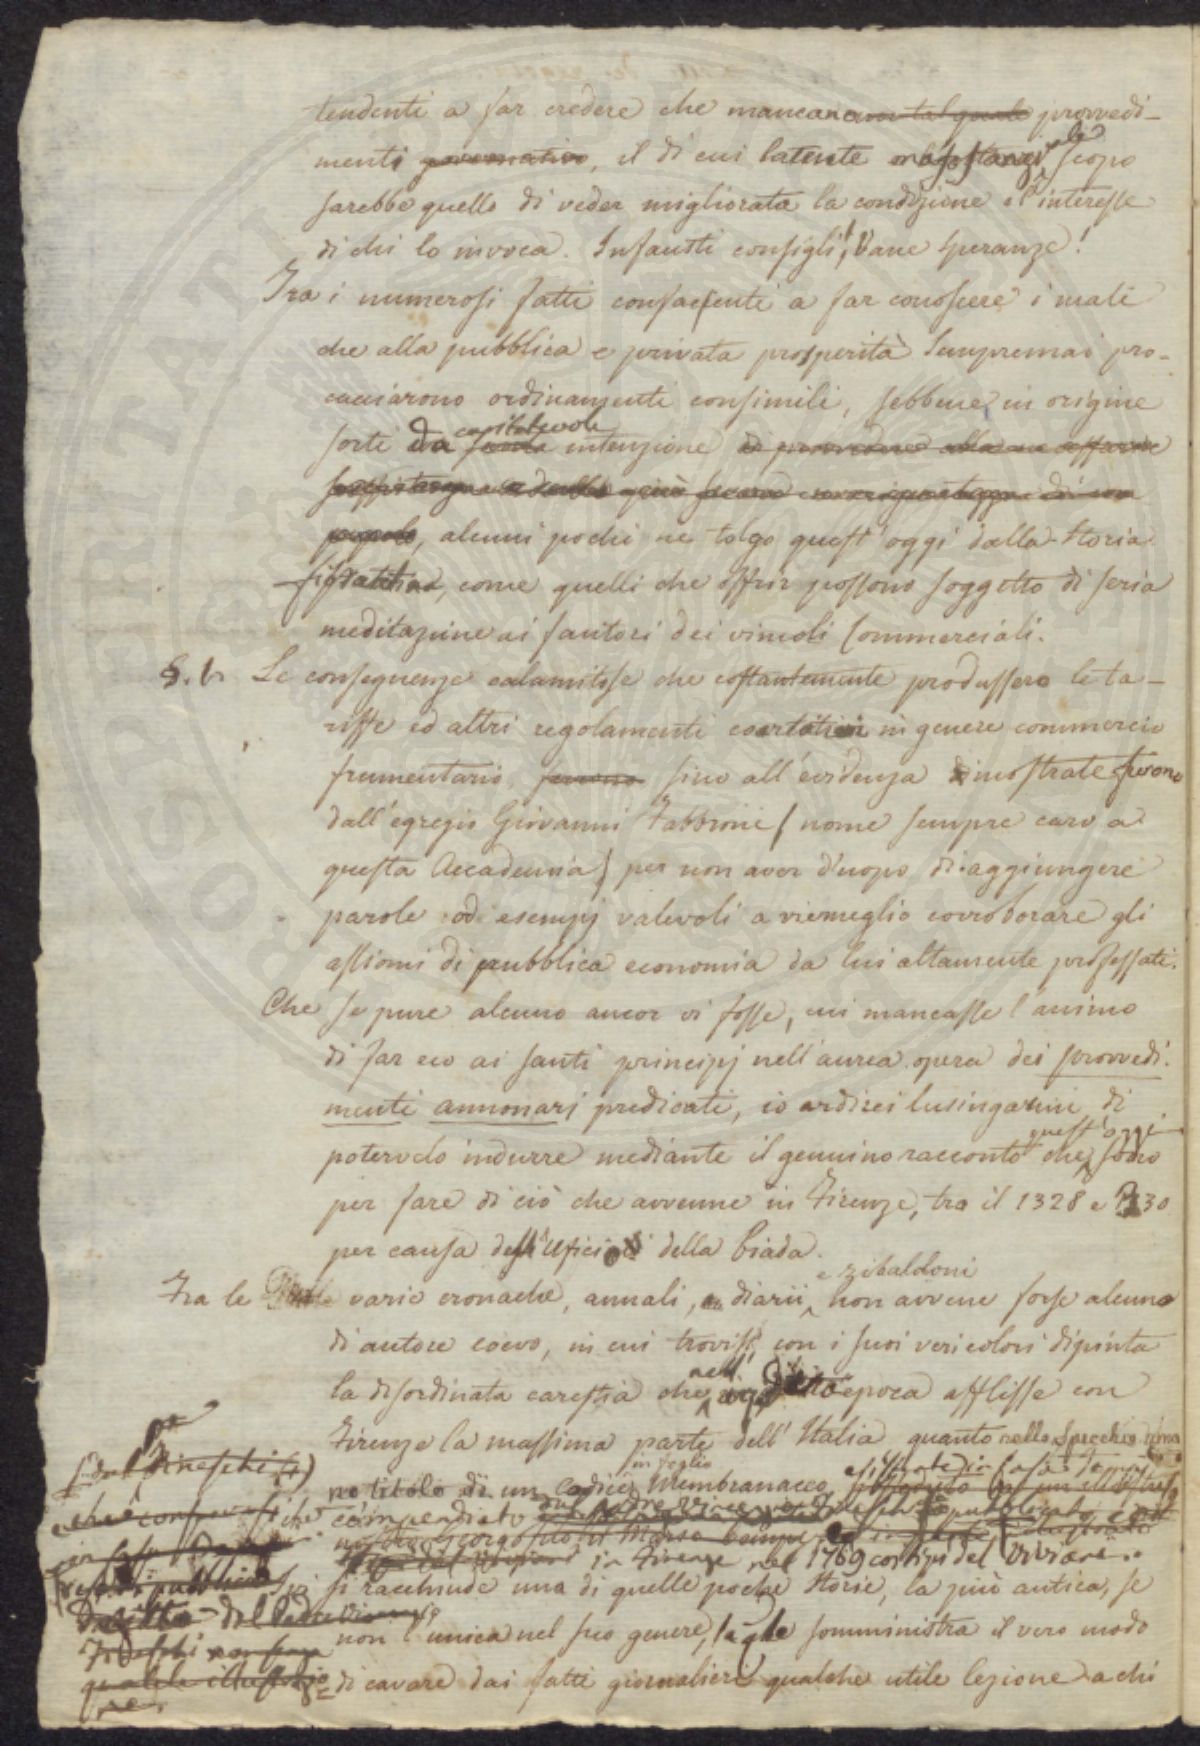 tendenti a far credere che mancano tal quale provvedi-
menti governativi, il di cui latente scopo
sarebbe quello di veder migliorata la condizione e l'interesse
di chi lo invoca. Infausti consigli! Vane speranze!
Tra i numerosi fatti confacienti a far conoscere i mali
che alla pubblica e privata prosperità sempremai pro-
cacciarono ordinamenti consimili, sebbene in origine
sorti da capitolevole intenzione
popolo, alcuni pochi ne tolgo quest'oggi dalla Storia
come quelli che offrir possono soggetto di seria
meditazione ai fautori dei vincoli Commerciali.
§. 1. Le conseguenze calamitose che costantemente produssero le ta-
riffe ed altri regolamenti coartativi in genere commercio
frumentario, furono sino all'evidenza dimostrate furono
dall'egregio Giovanni Fabbroni (nome sempre caro a
questa Accademia) per non aver d'uopo di aggiungere
parole od esempj valevoli a viemeglio corroborare gli
assiomi di pubblica economia da lui altamente professati.
Che se pure alcuno ancor vi fosse, cui mancasse l'animo
di far eco ai santi principj nell'aurea opera dei provvedi-
menti annonarj predicati, io ardirei lusingarmi di
quest'oggi
poterlo indurre mediante il genuino racconto che sono
per fare di ciò che avvenne in Firenze, tra il 1328 e 1330
per causa dell'Uficio della biada.
e zibaldoni
Fra le varie cronache, annali, diarii non avvene forse alcuno
di autore coevo, in cui trovisi con i suoi veri colori dipinta
nell'
la disordinata carestia che epoca afflisse con
Firenze la massima parte dell'Italia quanto nello Specchio uma
in foglio
no titolo di un codice Membranaceo
compendiato
in Firenze nel 1769 co' tipi del Viviani.
si racchiude una di quelle poche storie, la più antica, se
non l'unica nel suo genere, la qle somministra il vero modo
di cavare dai fatti giornalieri qualche utile lezione a chi
dal Fineschi (1)